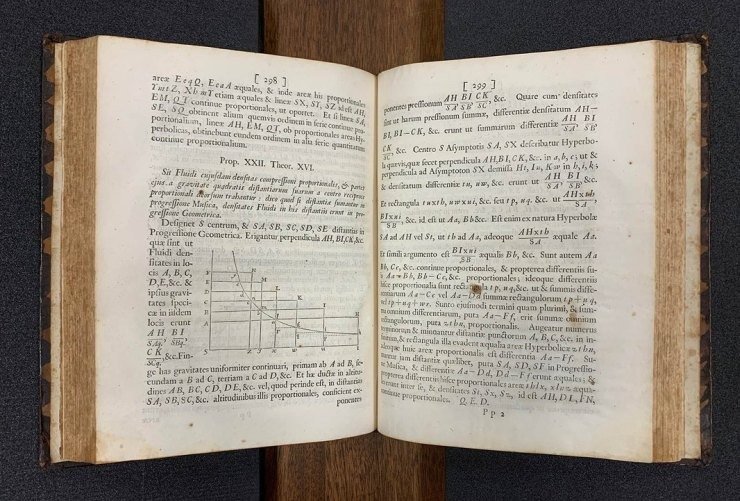 [ 298 ]
areæ EeqQ, EeaA æquales, & inde areæ his proportionales
YmtZ, XhmT etiam æquales & lineæ SX, ST, SZ id est AH,
EM, QT continue proportionales, ut oportet. Et si lineæ SA,
SE, SQ obtinent alium quemvis ordinem in serie continue pro-
portionalium, lineæ AH, EM, QT, ob proportionales areas Hy-
perbolicas, obtinebunt eundem ordinem in alia serie quantitatum
continue proportionalium.
Prop. XXII. Theor. XVI.
Sit Fluidi cujusdam densitas compressioni proportionalis, & partes
ejus a gravitate quadratis distantiarum suarum a centro reciproce
proportionali deorsum trahantur : dico quod si distantiæ sumantur in
progressione Musica, densitates Fluidi in his distantiis erunt in pro-
gressione Geometrica.
Designet S centrum, & SA, SB, SC, SD, SE distantias in
Progressione Geometrica. Erigantur perpendicula AH, BI, CK, &c.
quæ sint ut
Fluidi den-
sitates in lo-
cis A, B, C,
D, E, &c. &
ipsius gravi-
tates speci-
cæ in iisdem
locis erunt
AH BI
SAq. SBq.
CK
SCq. &c. Fin-
ge has gravitates uniformiter continuari, primam ab A ad B, se-
cundam a B ad C, tertiam a C ad D, &c. Et hæ ductæ in altitu-
dines AB, BC, CD, DE, &c. vel, quod perinde est, in distantias
SA, SB, SC, &c. altitudinibus illis proportionales, conficient ex-
ponentes
[ 299 ]
ponentes pressionum AH/SA, BI/SB, CK/SC, &c. Quare cum densitates
sint ut harum pressionum summæ, differentiæ densitatum AH—
BI, BI—CK, &c. erunt ut summarum differentiæ AH/SA, BI/SB,
CK/SC, &c. Centro S Asymptotis SA, SX describatur Hyperbo-
la quævis, quæ secet perpendicula AH, BI, CK, &c. in a, b, c; ut &
perpendicula ad Asymptoton SX demissa Ht, Iu, Kw in h, i, k;
& densitatum differentiæ tu, uw, &c. erunt ut AH/SA, BI/SB, &c.
Et rectangula tu×th, uw×ui, &c. seu tp, uq, &c. ut AH×th/SA,
BI×ui/SB, &c. id est ut Aa, Bb &c. Est enim ex natura Hyperbolæ
SA ad AH vel St, ut th ad Aa, adeoque AH×th/SA æquale Aa.
Et simili argumento est BI×ui/SB æqualis Bb, &c. Sunt autem Aa
Bb, Cc, &c. continue proportionales, & propterea differentiis su-
is Aa—Bb, Bb—Cc, &c. proportionales; ideoque differentiis
hisce proportionalia sunt rectangula tp, uq, &c. ut & summis diffe-
rentiarum Aa—Cc vel Aa—Dd summæ rectangulorum tp+uq,
vel tp+uq+wr. Sunto ejusmodi termini quam plurimi, & sum-
ma omnium differentiarum, puta Aa—Ff, erit summæ omnium
rectangulorum, puta zthn, proportionalis. Augeatur numerus
terminorum & minuantur distantiæ punctorum A, B, C, &c. in in-
finitum, & rectangula illa evadent æqualia areæ Hyperbolicæ zthn,
adeoque huic areæ proportionalis est differentia Aa—Ff. Su-
mantur jam distantiæ quælibet, puta SA, SD, SF in Progressio-
ne Musica, & differentiæ Aa—Dd, Dd—Ff erunt æquales; &
propterea differentiis hisce proportionales areæ thlx, xlnz æqua-
les erunt inter se, & densitates St, Sx, Sz, id est AH, DL, FN,
continue proportionales. Q. E. D.
Pp 2